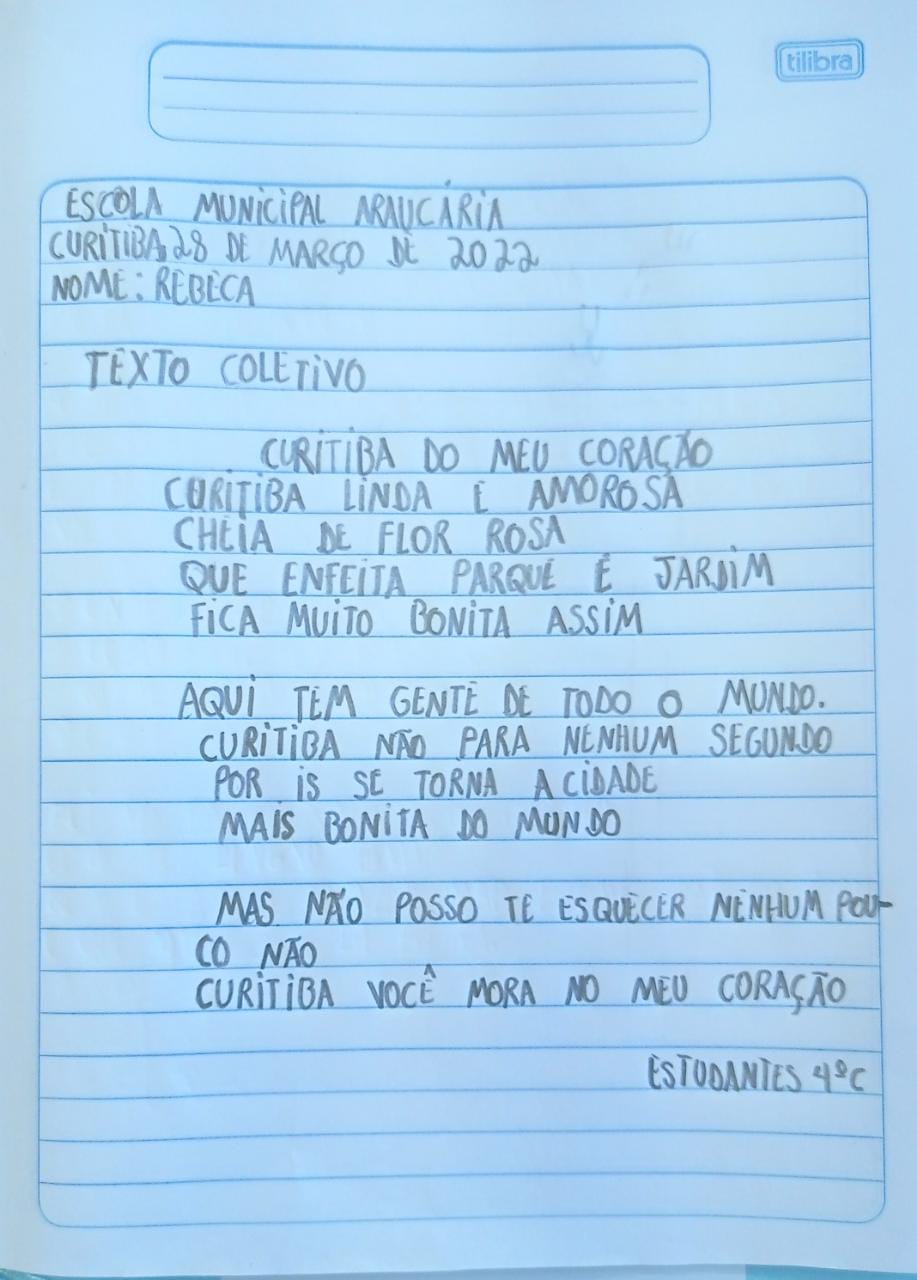 tilibra
ESCOLA MUNICIPAL ARAUCÁRIA
CURITIBA, 28 DE MARÇO DE 2022
NOME: REBECA
TEXTO COLETIVO
CURITIBA DO MEU CORAÇÃO
CURITIBA LINDA E AMOROSA
CHEIA DE FLOR ROSA
QUE ENFEITA PARQUE E JARDIM
FICA MUITO BONITA ASSIM
AQUI TEM GENTE DE TODO O MUNDO.
CURITIBA NÃO PARA NENHUM SEGUNDO
POR IS SE TORNA A CIDADE
MAIS BONITA DO MUNDO
MAS NÃO POSSO TE ESQUECER NENHUM POU-
CO NÃO
CURITIBA VOCÊ MORA NO MEU CORAÇÃO
ESTUDANTES 4ºC